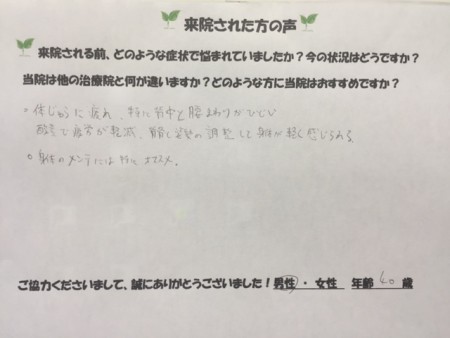 来院された方の声
来院される前、どのような症状で悩まれていましたか？今の状況はどうですか？
当院は他の治療院と何が違いますか？どのような方に当院はおすすめですか？
○体じゅうに疲れ、特に背中と腰まわりがひどい
で疲労が軽減、の調整して身体が軽く感じられる。
○身体のメンテには特にオススメ。
ご協力くださいまして、誠にありがとうございました！男性・女性 年齢 40 歳